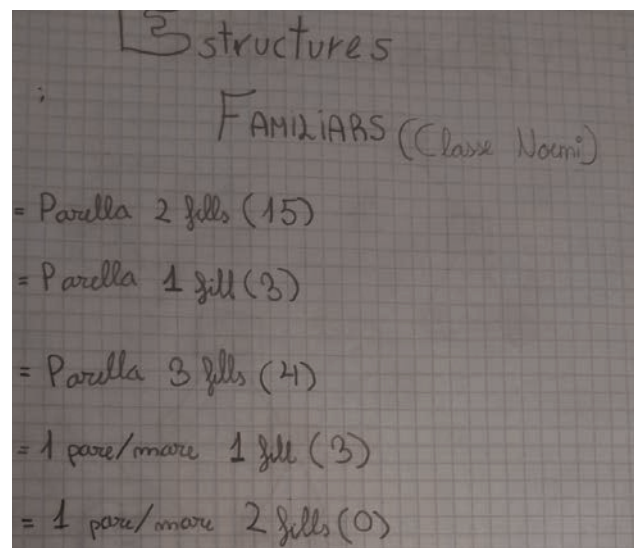 Estructures
FAMILIARS (Classe Noemi)
= Parella 2 fills (15)
= Parella 1 fill (3)
= Parella 3 fills (4)
= 1 pare/mare 1 fill (3)
= 1 pare/mare 2 fills (0)